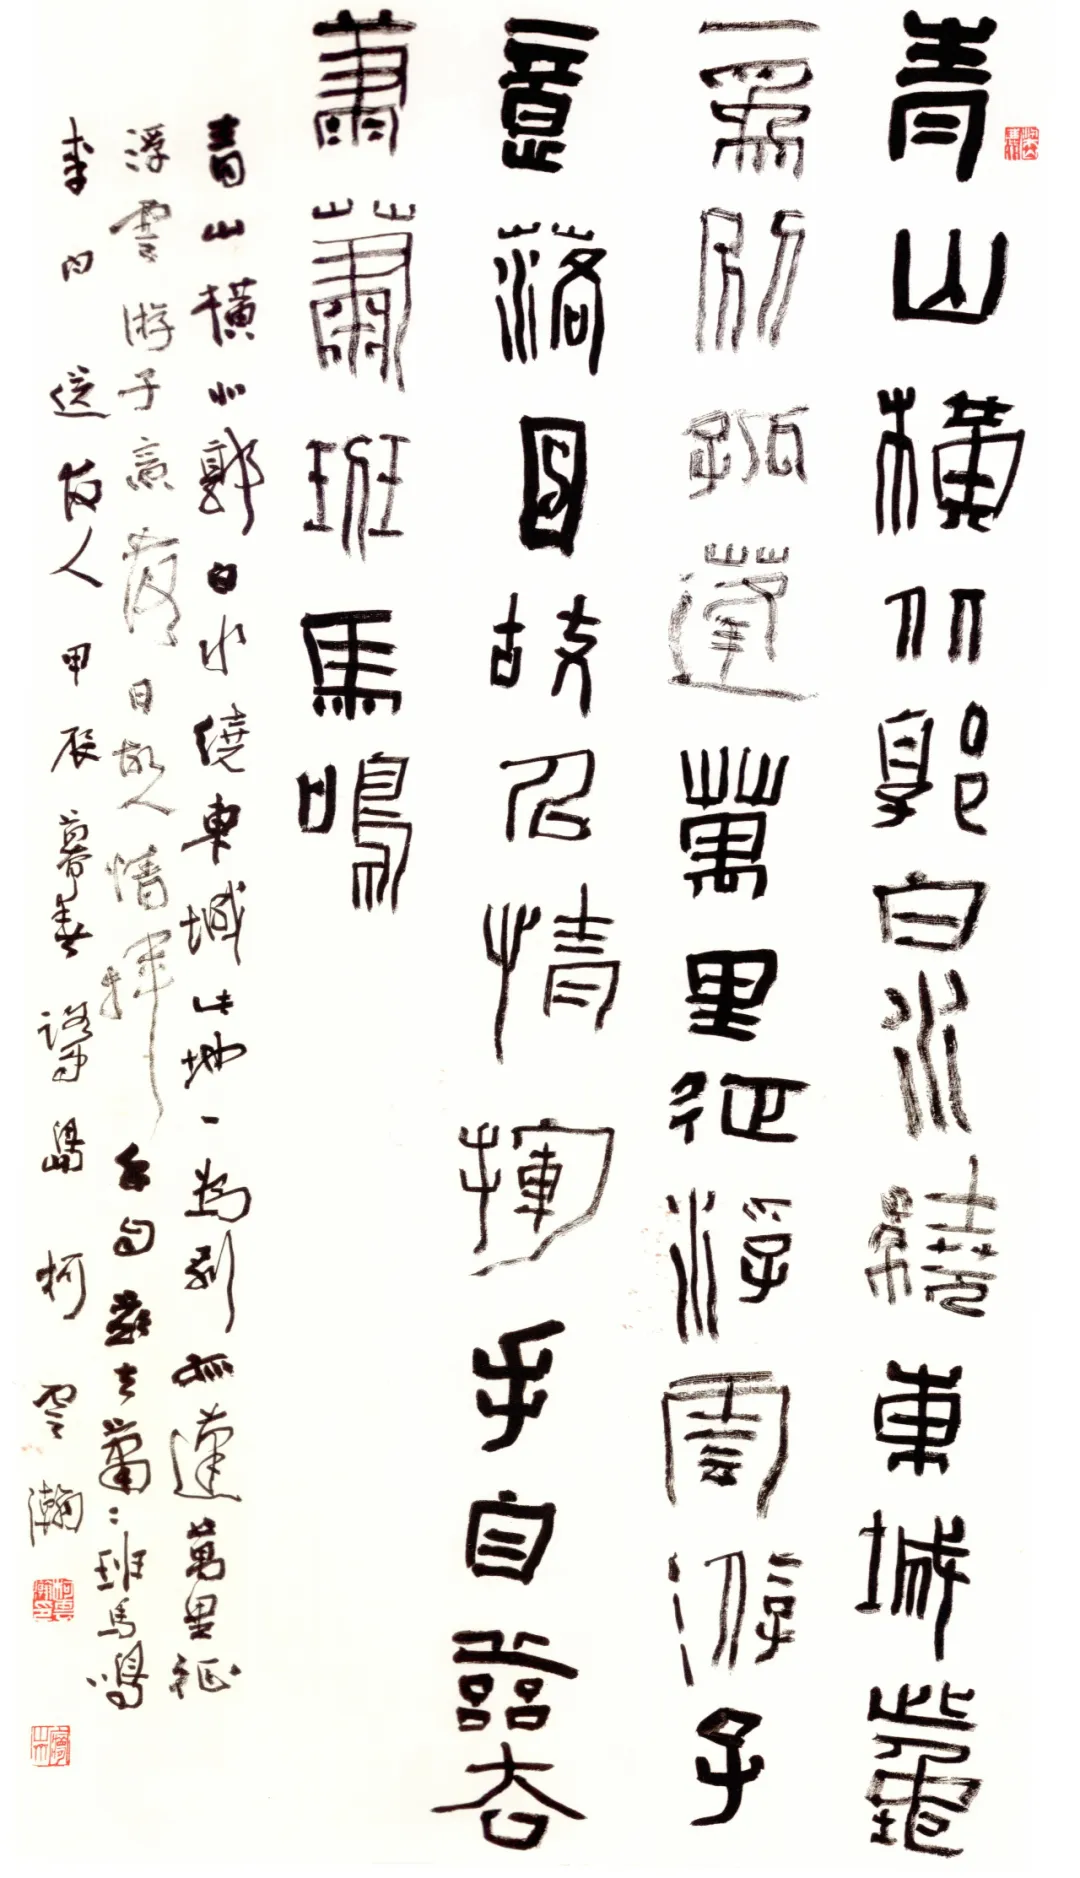 青山橫北郭白水繞東城此地
一為別孤蓬萬里征浮雲游子
意落日故人情揮手自茲去
蕭蕭班馬鳴
青山橫北郭白水繞東城此地一為別孤蓬萬里征
浮雲游子意落日故人情揮手自茲去蕭〻班馬鳴
李白 送友人 甲辰 暮春 柯雲瀚